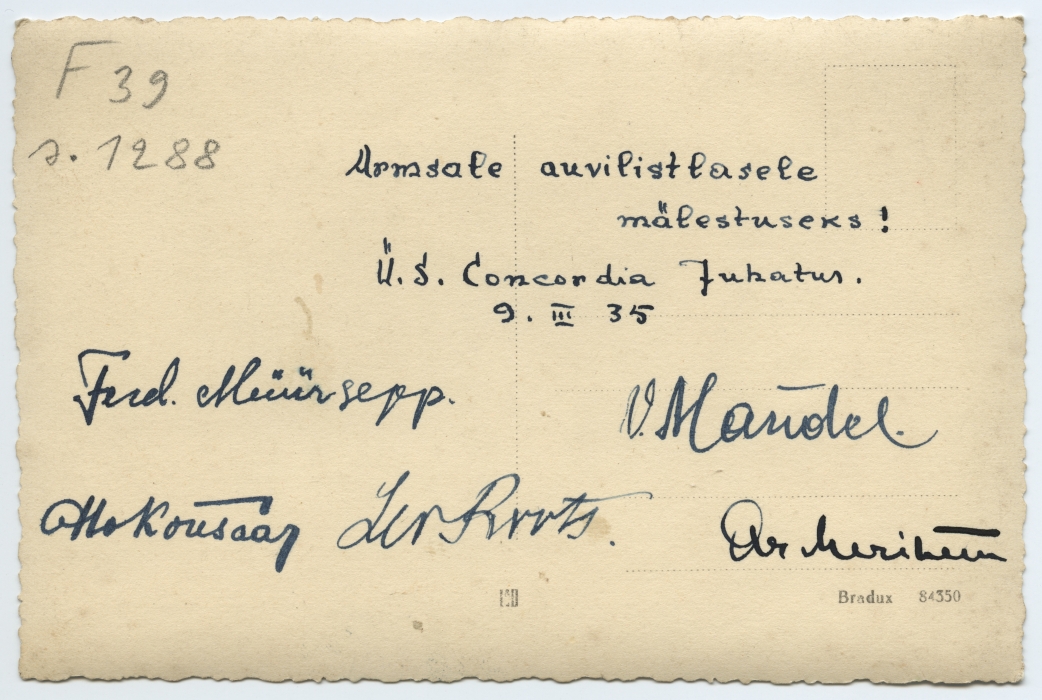 F 39
s. 1288
Armsale auvilistlasele
mälestuseks!
Ü.S. Concordia Juhatus.
9. III 35
Ferd. Müürsepp.
V. Mandel.
Otto Konsaap
Leo Roots.
Bradux 84350